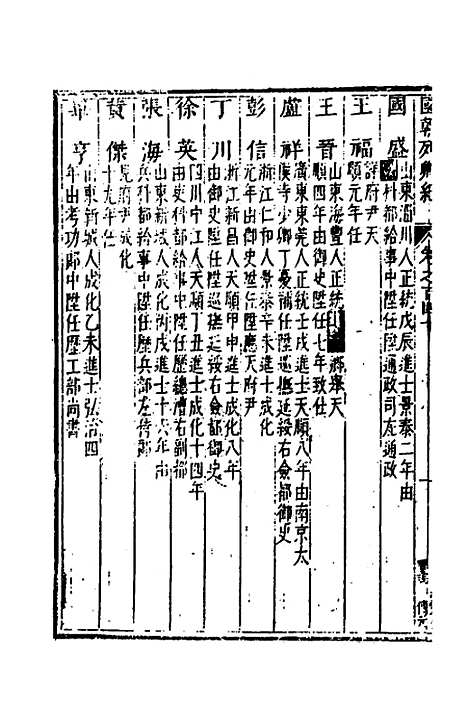 國朝列卿紀 卷之百四十
國盛 山東淄川人正統戊辰進士景泰二年由
科都給事中陞任陞通政司左通政
王福 詳府尹天
順元年任
王晉 山東海豐人正統 鄉舉天
順四年由御史陞任七年致仕
盧祥 廣東東莞人正統壬戌進士天順八年由南京太
僕寺少卿丁憂補任陞巡撫延綏右僉都御史
彭信 浙江仁和人景泰辛未進士成化
元年由御史陞任陞應天府尹
丁川 浙江新昌人天順甲申進士成化八年
由御史陞任陞巡撫延綏右僉都御史
徐英 四川中江人天順丁丑進士成化十四年
由吏科都給事中陞任歷總漕右副都
張海 山東新城人成化丙戌進士十六年由
兵科都給事中陞任歷兵部左侍郎
黃傑 見府尹成化
十九年任
畢亨 山東新城人成化乙未進士弘治四
年由考功郎中陞任歷工部尚書